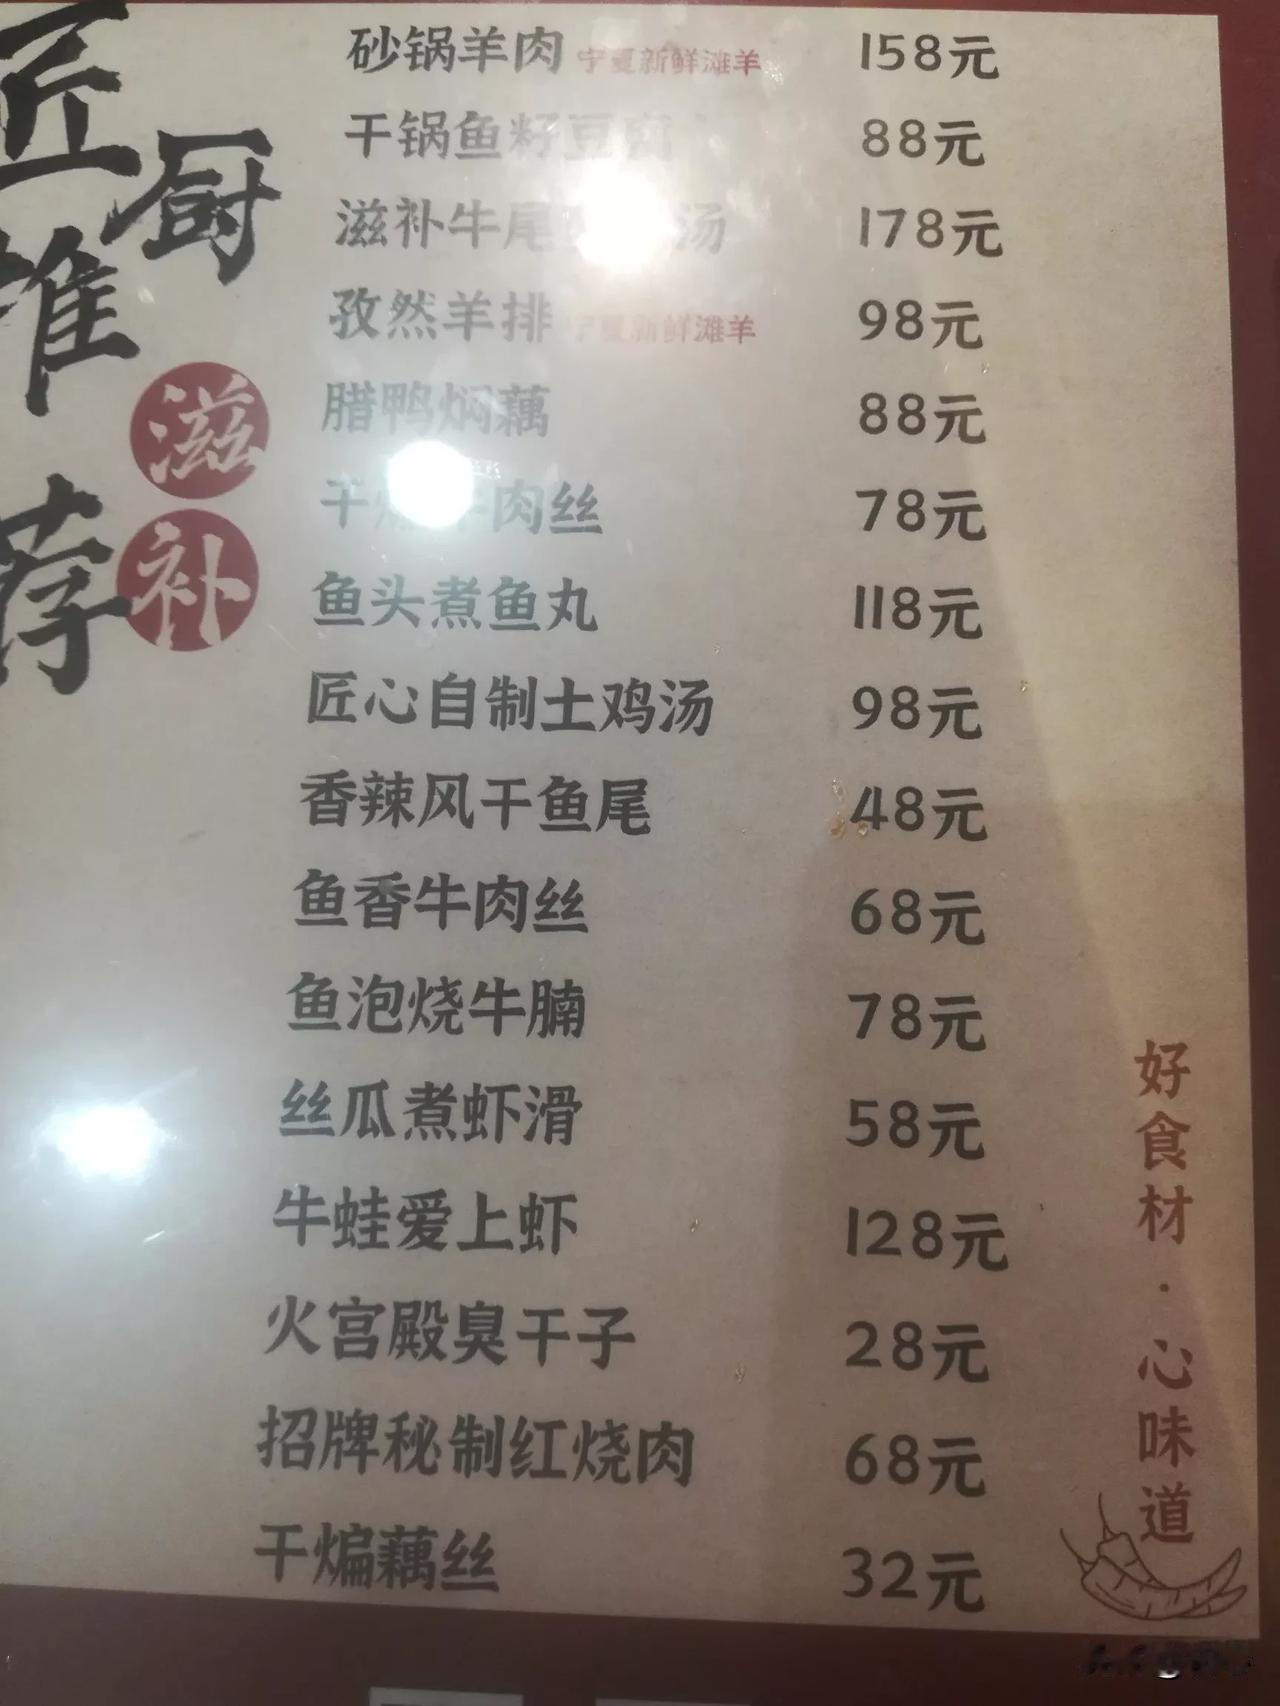 匠厨推荐
滋补
砂锅羊肉 宁夏新鲜滩羊 158元
干锅鱼籽豆腐 88元
滋补牛尾 汤 178元
孜然羊排 宁夏新鲜滩羊 98元
腊鸭焖藕 88元
干 肉丝 78元
鱼头煮鱼丸 118元
匠心自制土鸡汤 98元
香辣风干鱼尾 48元
鱼香牛肉丝 68元
鱼泡烧牛腩 78元
丝瓜煮虾滑 58元
牛蛙爱上虾 128元
火宫殿臭干子 28元
招牌秘制红烧肉 68元
干煸藕丝 32元
好食材·心味道